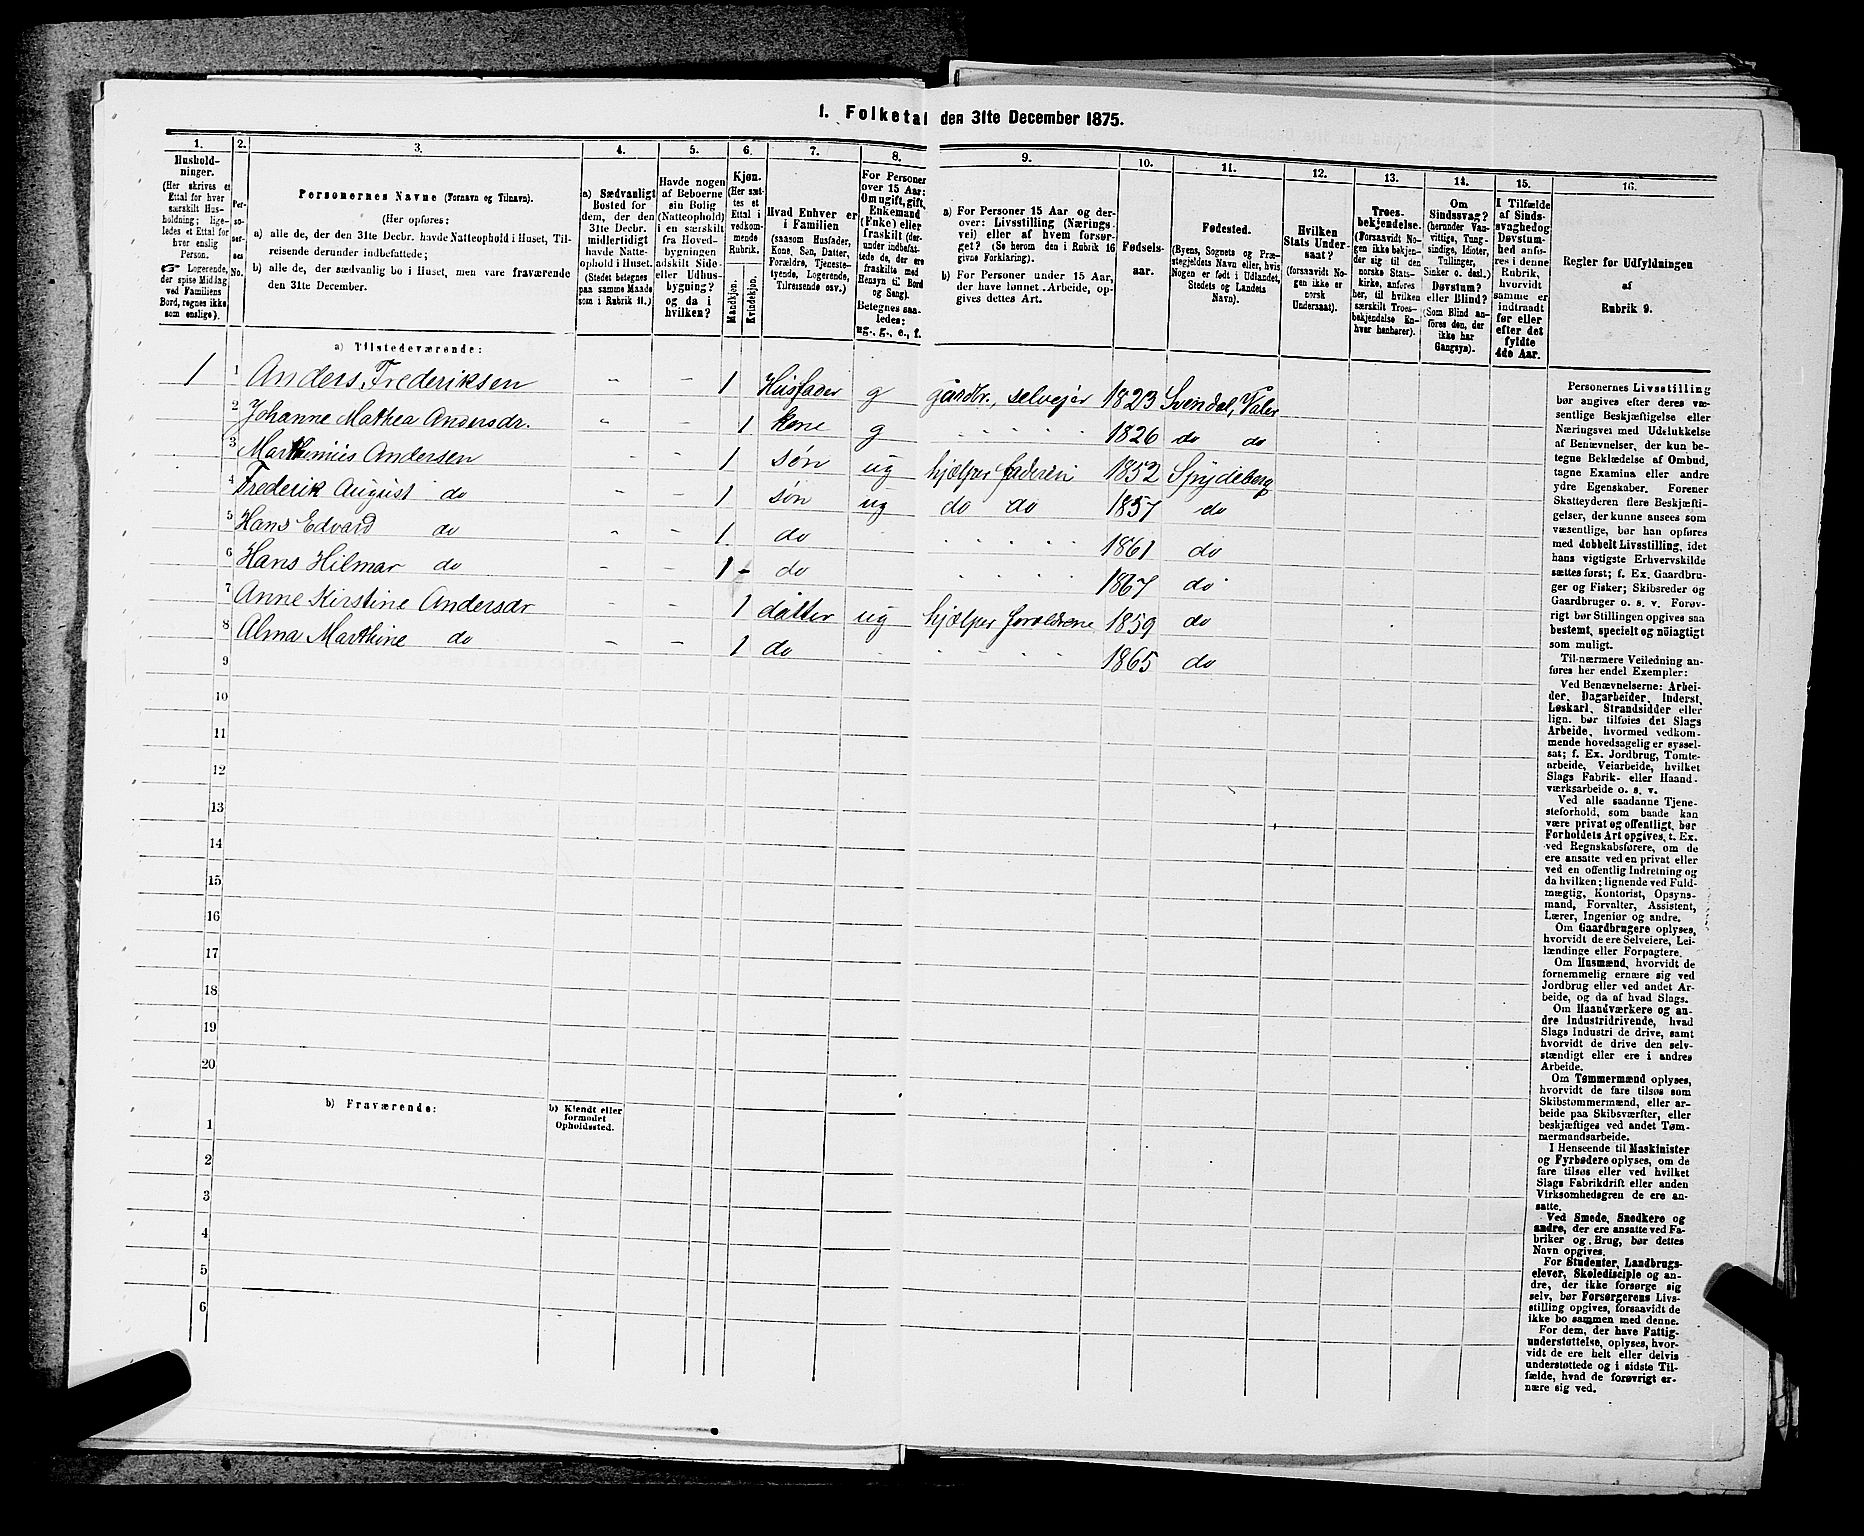 1. Folketal den 31te December 1875.
1.
Hushold-
ninger.
(Her skrives et
Ettal for hver
særskilt Hus-
holdning; lige-
ledes et Ettal for
hver enslig
Person.
☞ Logerende,
der spise Middag
ved Familiens
Bord, regnes ikke
som enslige).
2.
Per-
so-
ner-
nes
No.
3.
Personernes Navne (Fornavn og Tilnavn).
(Her opføres:
a) alle de, der den 31te Decbr. havde Natteophold i Huset, Til-
reisende derunder indbefattede;
b) alle de, der sædvanlig bo i Huset, men vare fraværende
den 31te December.
4.
a) Sædvanligt
Bosted for
dem, der den
31te Decbr.
midlertidigt
havde Natte-
ophold i Huset.
(Stedet betegnes
paa samme Maade
som i Rubrik 11.)
5.
Havde nogen
af Beboerne
sin Bolig
(Natteophold)
i en særskilt
fra Hoved-
bygningen
adskilt Side-
eller Udhus-
bygning?
og da i
hvilken?
6.
Kjøn.
(Her sæt-
tes et
Ettal i
vedkom-
mende
Rubrik.
Mandkjøn.
Kvindekjøn.
7.
Hvad Enhver er
i Familien
(saasom Husfader,
Kone, Søn, Datter,
Forældre, Tjeneste-
tyende, Logerende,
Tilreisende osv.)
8.
For Personer
over 15 Aar:
Om ugift, gift,
Enkemand
(Enke) eller
fraskilt (der-
under indbefat-
tede de, der ere
fraskilte med
Hensyn til Bord
og Seng).
Betegnes saa-
ledes:
ug., g., e., f.
9.
a) For Personer 15 Aar og der-
over: Livsstilling (Nærings-
vei) eller af hvem forsør-
get? (Se herom den i Rubrik 16
givne Forklaring).
b) For Personer under 15 Aar,
der have lønnet Arbeide, op-
gives dettes Art.
10.
Fødsels-
aar.
11.
Fødested.
(Byens, Sognets og Præ-
stegjeldets Navn eller, hvis
Nogen er født i Udlandet,
Stedets og Landets
Navn).
12.
Hvilken
Stats Under-
saat?
(forsaavidt No-
gen ikke er
norsk
Undersaat).
13.
Troes-
bekjendelse.
(Forsaavidt No-
gen ikke bekjen-
der sig til den
norske Stats-
kirke, anføres
her, til hvilken
særskilt Troes-
bekjendelse En-
hver henhører).
14.
Om
Sindssvag?
(herunder Van-
vittige, Tung-
sindige, Idioter,
Tullinger,
Sinker o. desl.)
Døvstum?
eller Blind?
(Som Blind an-
føres den, der
ikke har
Gangsyn).
15.
I Tilfælde
af Sinds-
svaghed og
Døvstum-
hed anfø-
res i denne
Rubrik,
hvorvidt
samme er
indtraadt
før eller
efter det
fyldte
4de Aar.
16.
Regler for Udfyldningen
af
Rubrik 9.
a) Tilstedeværende:
1 1 Anders Frederiksen - - 1 Husfader g gårdbr., selvejer 1823 Svendal, Valer
2 Johanne Mathea Andersdr. - 1 kone g 1826 do do
3 Marthinius Andersen - - 1 søn ug hjælper faderen 1852 Spydeberg
4 Frederik August do - - 1 søn ug do do 1857 do
5 Hans Edvard do - - 1 do 1861 do
6 Hans Hilmar do - - 1 - do 1867 do
7 Anne Kirstine Andersdr - - 1 datter ug hjælper forældrene 1859 do
8 Alma Marthine do - - 1 do 1865 do
9
10
11
12
13
14
15
16
17
18
19
20
b) Fraværende: b) Kjendt eller
formodet
Opholdssted.
1
2
3
4
5
6
Personernes Livsstilling
bør angives efter deres væ-
sentlige Beskjæftigelse eller
Næringsvei med Udelukkelse
af Benævnelser, der kun be-
tegne Beklædelse af Ombud,
tagne Examina eller andre
ydre Egenskaber. Forener
Skatteyderen flere Beskjæfti-
gelser, der kunne ansees som
væsentlige, bør han opføres
med dobbelt Livsstilling, idet
hans vigtigste Erhvervskilde
sættes først; f. Ex. Gaardbru-
ger og Fisker; Skibsreder og
Gaardbruger o. s. v. Forøv-
rigt bør Stillingen opgives saa
bestemt, specielt og nöiagtigt
som muligt.
Til nærmere Veiledning an-
føres her endel Exempler:
Ved Benævnelserne: Arbei-
der, Dagarbeider, Inderst,
Løskarl, Strandsidder eller
lign. bør tilføies det Slags
Arbeide, hvormed vedkom-
mende hovedsagelig er syssel-
sat; f. Ex. Jordbrug, Tomte-
arbeide, Veiarbeide, hvilket
Slags Fabrik- eller Haand-
værksarbeide o. s. v.
Ved alle saadanne Tjene-
steforhold, som baade kan
være privat og offentligt, bør
Forholdets Art opgives, t. Ex.
ved Regnskabsførere, om de
ere ansatte ved en privat eller
ved en offentlig Indretning og
da hvilken; lignende ved Fuld-
mægtig, Kontorist, Opsyns-
mand, Forvalter, Assistent,
Lærer, Ingeniør og andre.
Om Gaardbrugere oplyses,
hvorvidt de ere Selveiere, Lei-
lændinge eller Forpagtere.
Om Husmænd, hvorvidt de
fornemmelig ernære sig ved
Jordbrug eller ved andet Ar-
beide, og da af hvad Slags.
Om Haandværkere og an-
dre Industridrivende, hvad
Slags Industri de drive, samt
hvorvidt de drive den selv-
stændigt eller ere i andres
Arbeide.
Om Tømmermænd oplyses,
hvorvidt de fare tilsøs som
Skibstømmermænd, eller ar-
beide paa Skibsværfter, eller
beskjæftiges ved andet Tøm-
mermandsarbeide.
I Henseende til Maskinister
og Fyrbødere oplyses, om de
fare tilsøs eller ved hvilket
Slags Fabrikdrift eller anden
Virksomhedsgren de ere an-
satte.
Ved Smede, Snedkere og
andre, der ere ansatte ved Fa-
briker og Brug, bør dettes
Navn opgives.
For Studenter, Landbrugs-
elever, Skoledisciple og an-
dre, der ikke forsørge sig
selv, bør Forsørgerens Livs-
stilling opgives, forsaavidt de
ikke bo sammen med denne.
For dem, der have Fattig-
understøttelse, oplyses, hvor-
vidt de ere helt eller delvis
understøttede og i sidste Til-
fælde, hvad de forøvrigt er-
nære sig ved.